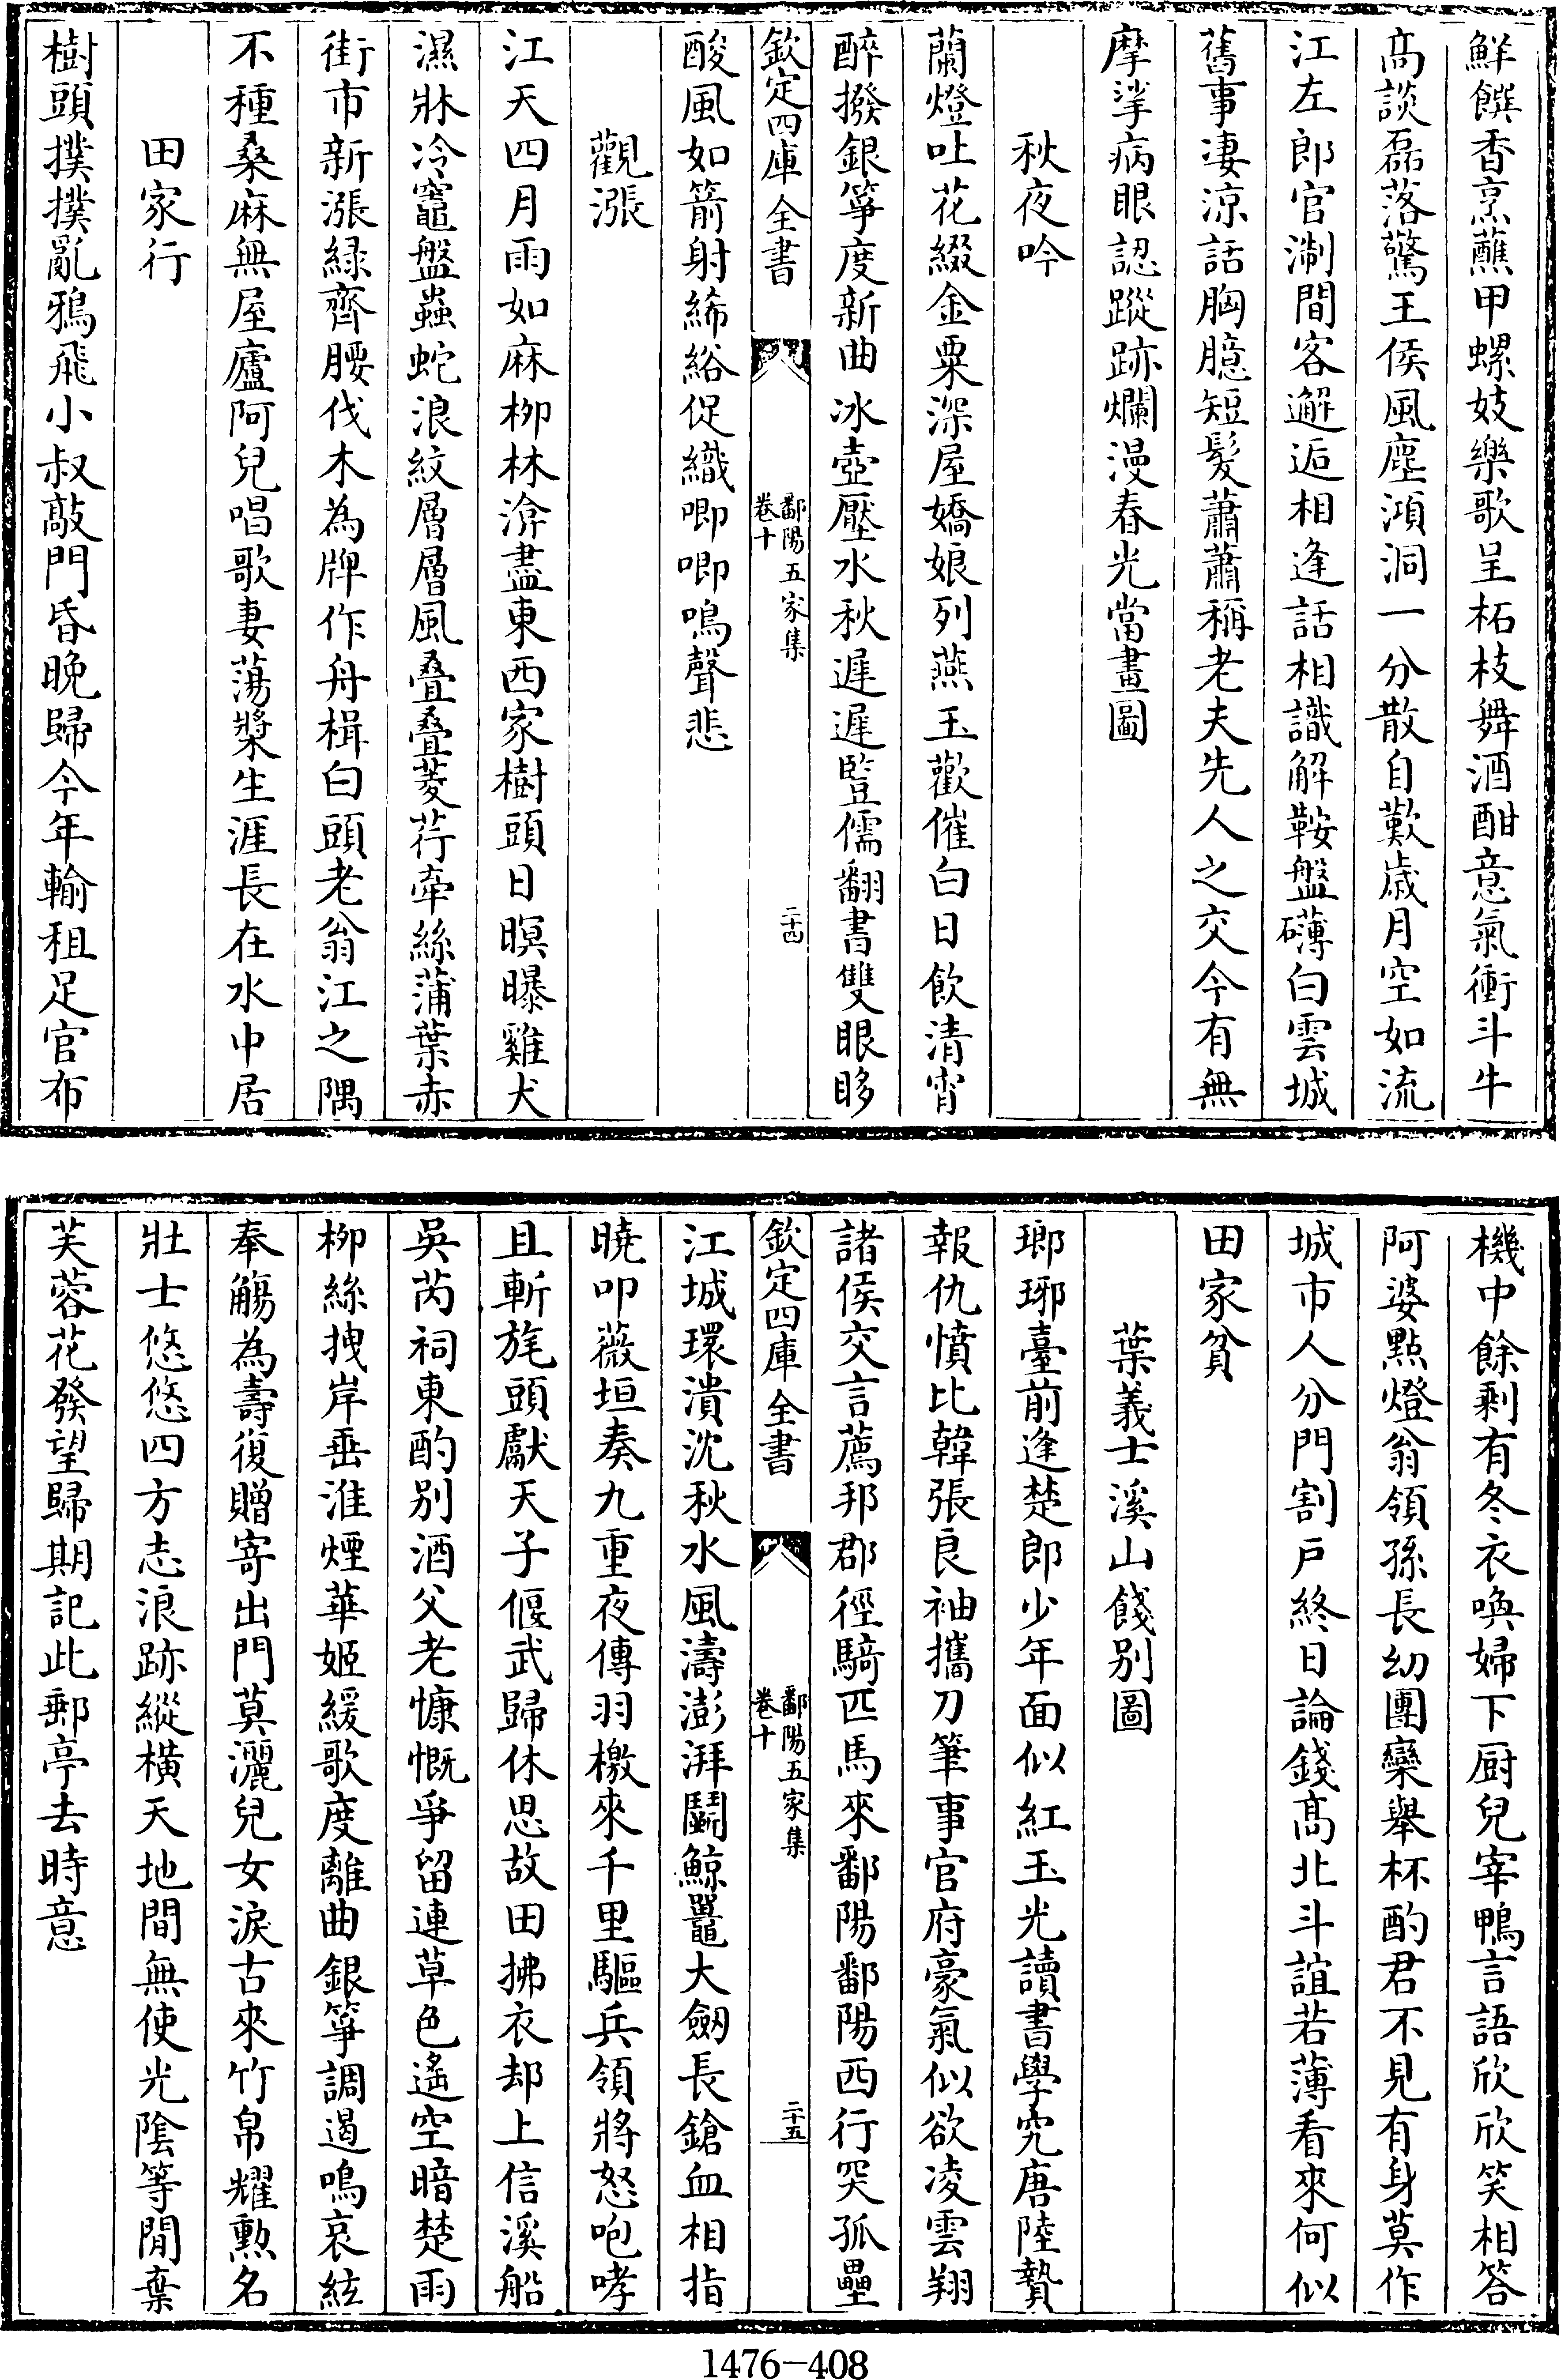 鮮饌香烹蘸甲螺妓樂歌呈柘枝舞酒酣意氣衝斗牛
髙談磊落驚王侯風塵澒洞一分散自歎歳月空如流
江左郎官淛間客邂逅相逢話相識解鞍盤礴白雲城
舊事凄涼話胸臆短髮蕭蕭稱老夫先人之交今有無
摩挲病眼認蹤跡爛漫春光當畫圖
秋夜吟
蘭燈吐花綴金粟深屋嬌娘列燕玉歡催白日飲清宵
醉撥銀箏度新曲冰壺壓水秋遲遲豎儒翻書雙眼眵
欽定四庫全書
鄱陽五家集
卷十
二十四
酸風如箭射絺綌促織唧唧鳴聲悲
觀漲
江天四月雨如麻柳林渰盡東西家樹頭日暝曝雞犬
濕牀冷竈盤蟲蛇浪紋層層風疊疊菱荇牽絲蒲葉赤
街市新漲緑齊腰伐木為牌作舟楫白頭老翁江之隅
不種桑麻無屋廬阿兒唱歌妻蕩槳生涯長在水中居
田家行
樹頭撲撲亂鴉飛小叔敲門昏晚歸今年輸租足官布
機中餘剩有冬衣喚婦下厨兒宰鴨言語欣欣笑相答
阿婆點燈翁領孫長幼團欒舉杯酌君不見有身莫作
城市人分門割戸終日論錢髙北斗誼若薄看來何似
田家貧
葉義士溪山餞别圖
瑯琊臺前逢楚郎少年面似紅玉光讀書學究唐陸贄
報仇憤比韓張良袖攜刀筆事官府豪氣似欲凌雲翔
諸侯交言薦邦郡徑騎匹馬來鄱陽鄱陽西行突孤壘
欽定四庫全書
鄱陽五家集
卷十
二十五
江城環潰沈秋水風濤澎湃鬭鯨鼉大劒長鎗血相指
曉叩薇垣奏九重夜傳羽檄來千里驅兵領將怒咆哮
且斬旄頭獻天子偃武歸休思故田拂衣却上信溪船
吳芮祠東酌别酒父老慷慨爭留連草色遙空暗楚雨
柳絲拽岸垂淮煙華姬緩歌度離曲銀箏調遏鳴哀絃
奉觴為壽復贈寄出門莫灑兒女淚古來竹帛耀勲名
壯士悠悠四方志浪跡縱横天地間無使光陰等閒棄
芙蓉花發望歸期記此郵亭去時意
1476-408